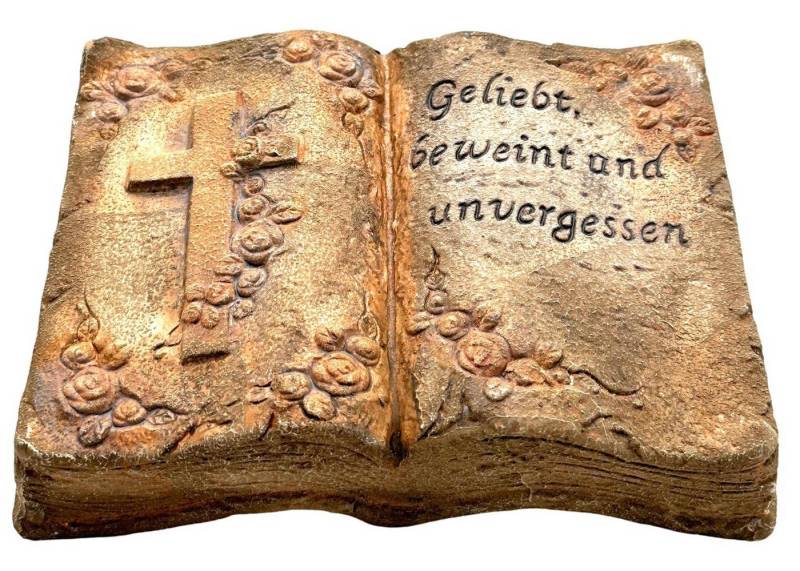 Geliebt,
beweint und
unvergessen